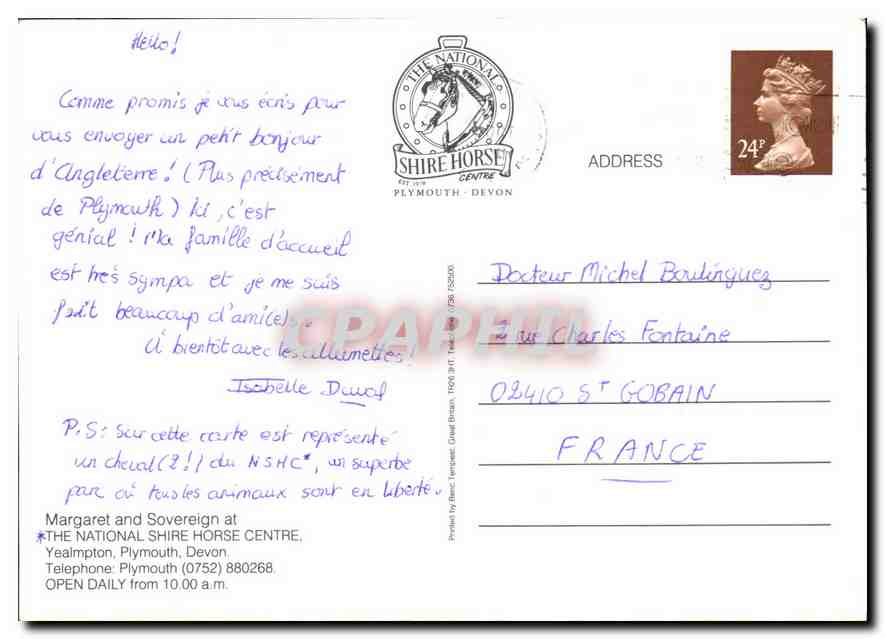 Hello!
Comme promis je vous écris pour
vous envoyer un petit bonjour
d'Angleterre! (Plus précisément
de Plymouth) Ici, c'est
génial! Ma famille d'accueil
est très sympa et je me suis
fait beaucoup d'ami(e)s.
À bientôt avec les allumettes!
Isabelle Duval
P.S: Sur cette carte est représenté
un cheval (2!) du NSHC*, un superbe
parc où tous les animaux sont en liberté.
Margaret and Sovereign at
*THE NATIONAL SHIRE HORSE CENTRE,
Yealmpton, Plymouth, Devon.
Telephone: Plymouth (0752) 880268.
OPEN DAILY from 10.00 a.m.
THE NATIONAL
SHIRE HORSE
CENTRE
EST 1978
PLYMOUTH · DEVON
Printed by Beric Tempest, Great Britain, TR26 3HT. Telephone 0736 752500.
ADDRESS
24P
Docteur Michel Boulinguez
2 rue Charles Fontaine
02410 ST GOBAIN
FRANCE
CPAPHIL